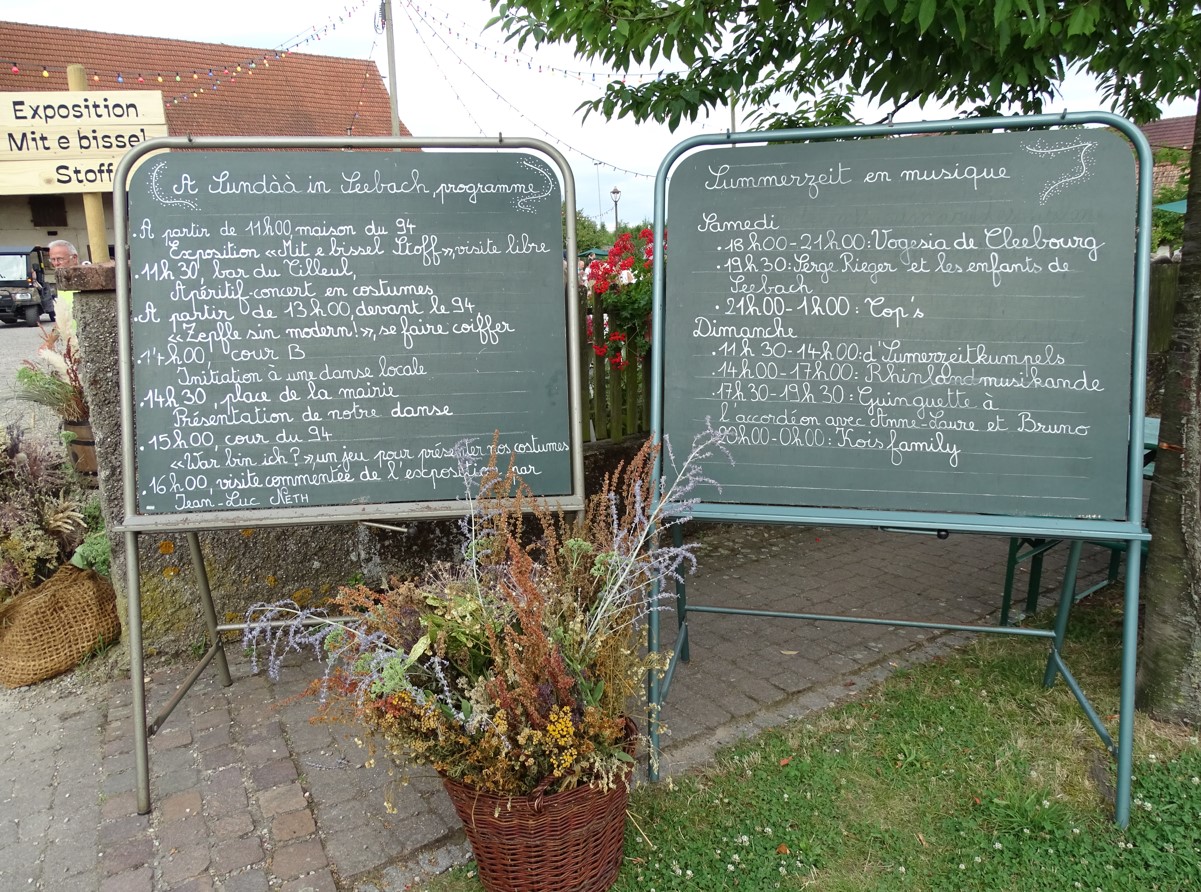 Exposition
Mit e bissel
Stoff
A Sundàà in Seebach programme
. A partir de 11h00, maison du 94
Exposition «Mit e bissel Stoff», visite libre
. 11h30, bar du Tilleul,
Apéritif-concert en costumes
. A partir de 13h00, devant le 94
«Zepfle sin modern!», se faire coiffer
. 14h00, cour B
Initiation à une danse locale
. 14h30, place de la mairie
Présentation de notre danse
. 15h00, cour du 94
«War bin ich?», un jeu pour présenter nos costumes
. 16h00, visite commentée de l'exposition par
Jean-Luc NETH
Summerzeit en musique
Samedi
. 18h00-21h00: Vogesia de Cleebourg
. 19h30: Serge Rieger et les enfants de
Seebach
. 21h00-1h00: Top's
Dimanche
. 11h30-14h00: d'Sumerzeitkumpels
. 14h00-17h00: Rhinlandmusikande
. 17h30-19h30: Guinguette à
l'accordéon avec Anne-Laure et Bruno
. 20h00-0h00: Kois family